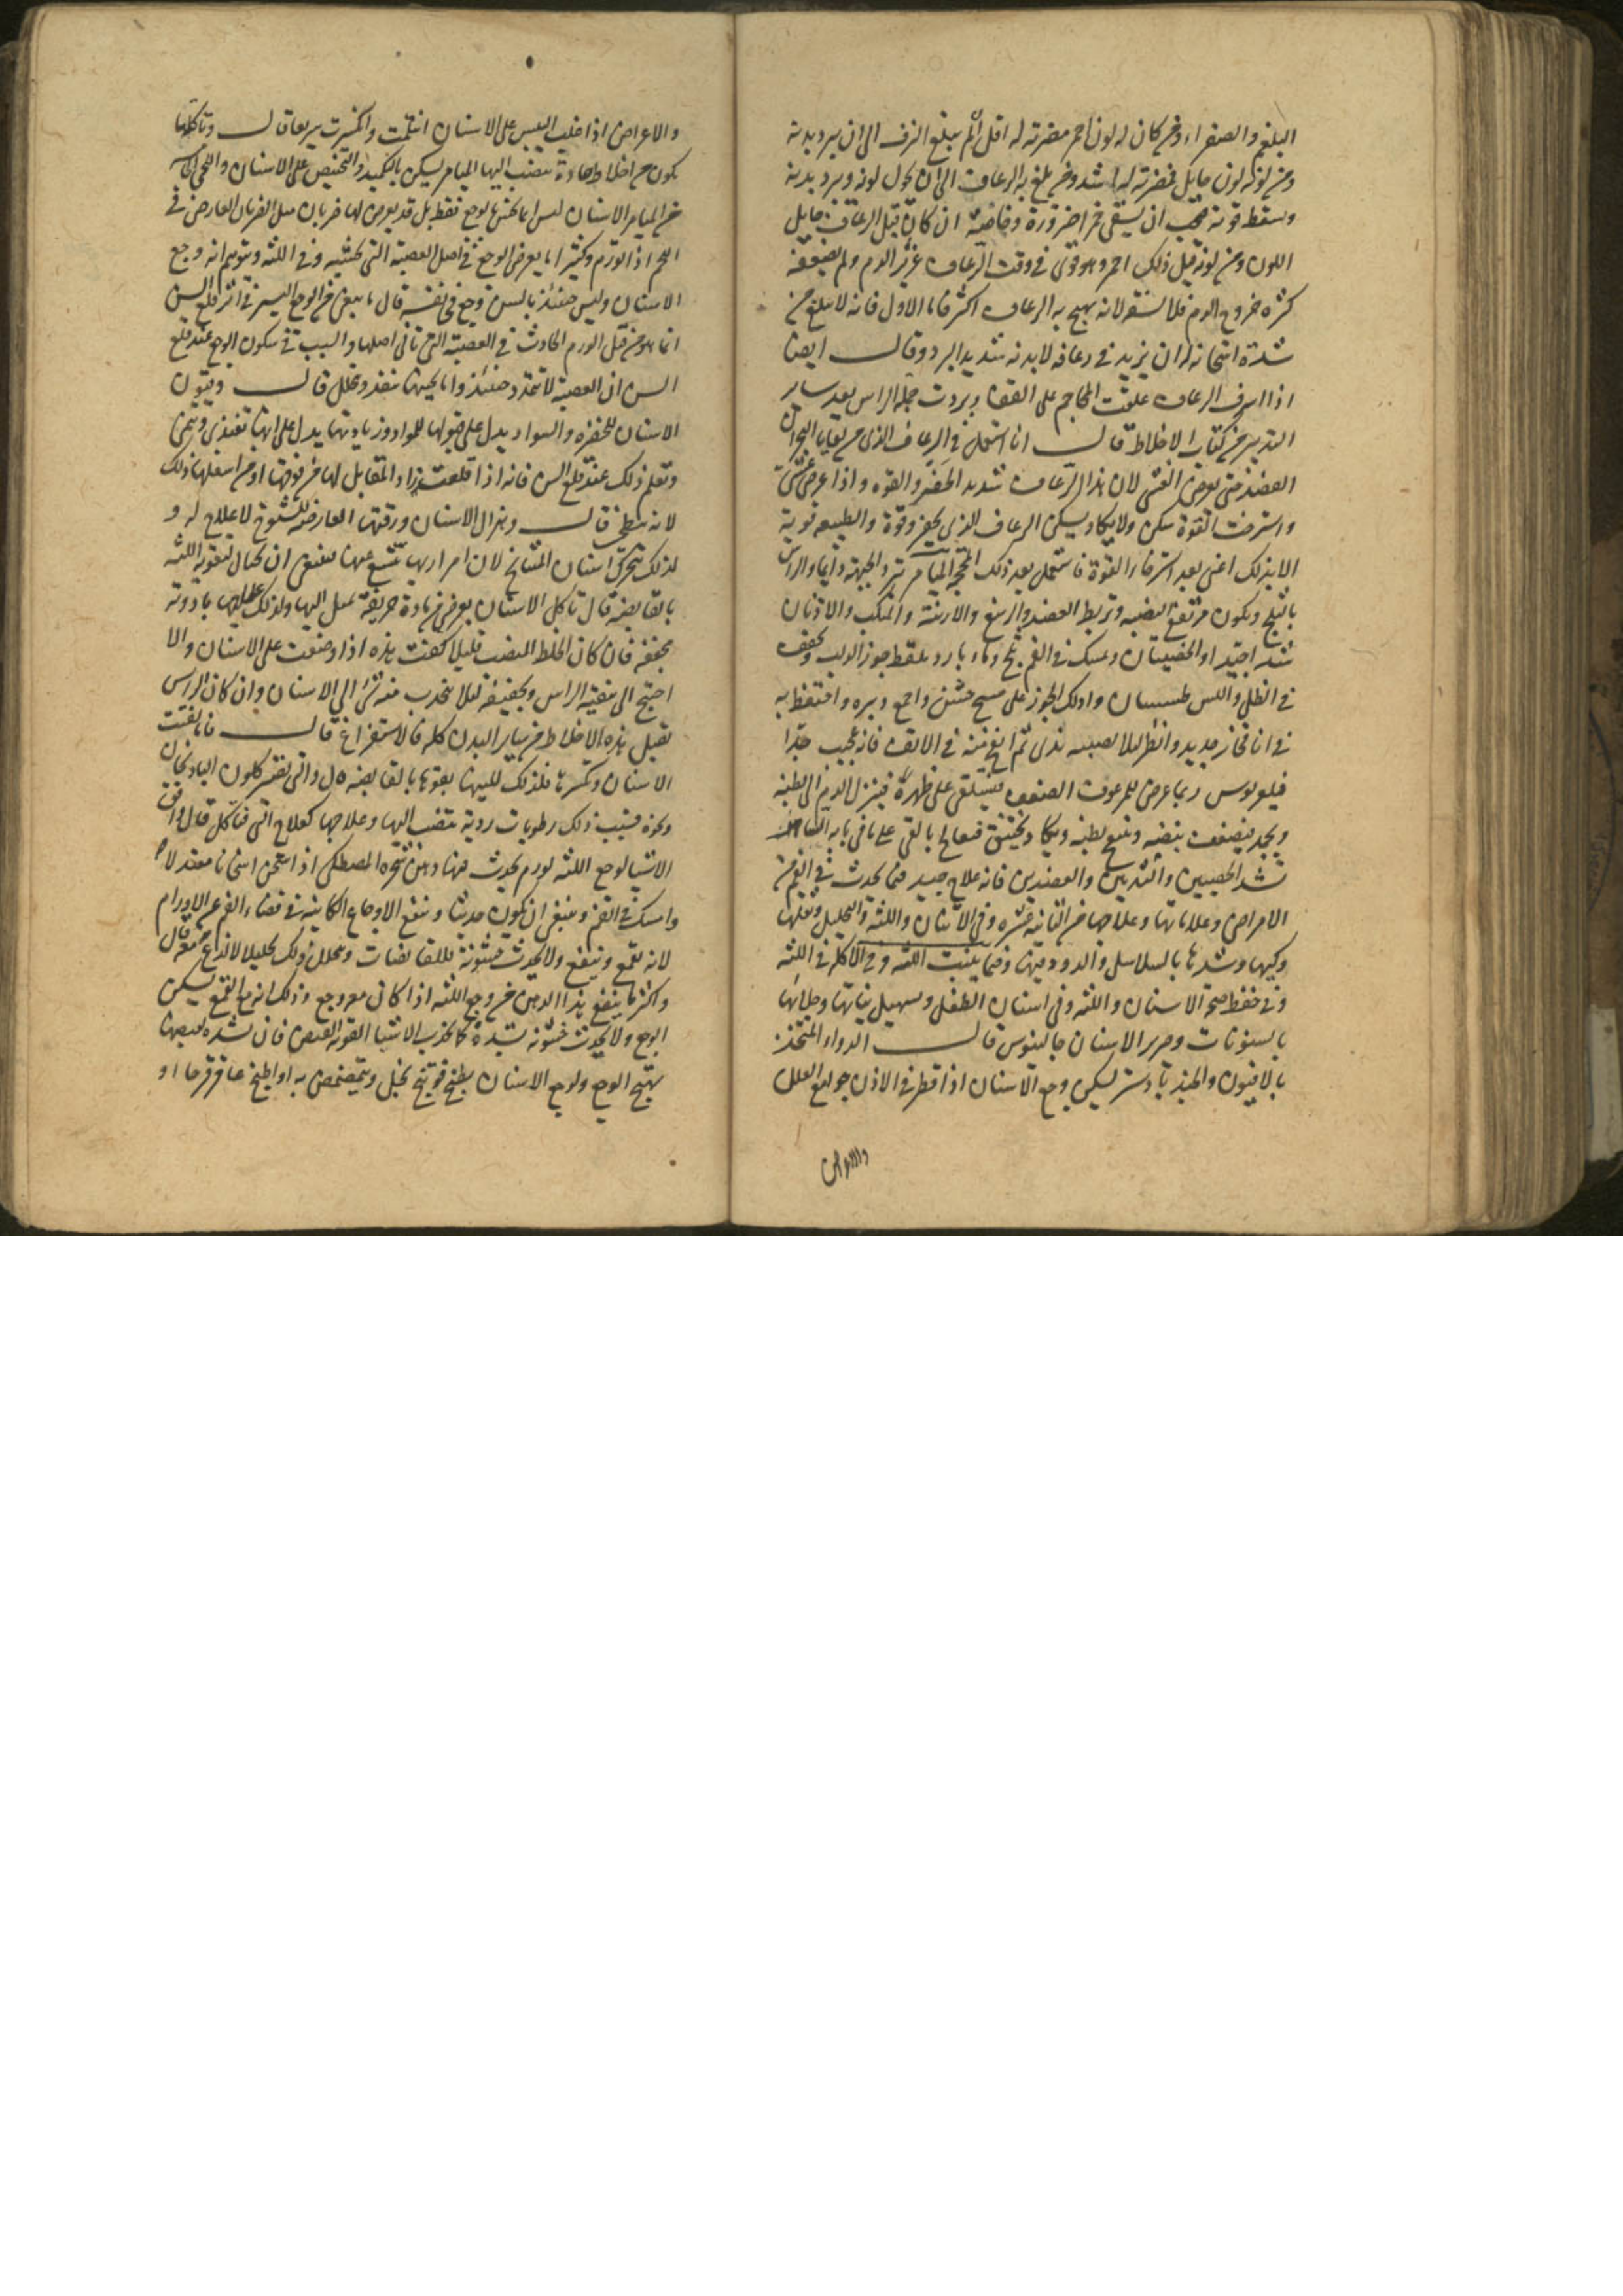 البلغم والصفراء ومن كان له لون احمر مضرته له اقل ثم يبلغ النزف الى ان يبرد بدنه
ومن لونه لون حايل فمضرته له اشد ومن بلغ به الرعاف الى ان يحول لونه ويبرد بدنه
وسقط قوته فيجب ان يسقى خمرا ضرورة وخاصة ان كان قبل الرعاف حايل
اللون ومن لونه قبل ذلك احمر وهو قوى فى وقت الرعاف غزير الدم ولم يضعفه
كثرة خروج الدم فلا تسقه لانه يهيج به الرعاف اكثر فاما الاول فانه لا يبلغ من
شدة اسخانه له ان يزيد فى رعافه لان بدنه شديد البرد وقال ايضا
اذا اسرف الرعاف علقت المحاجم على القفا وبردت جملة الراس بعد ساير
التدبير من كتاب الاخلاط قال انا استعمل فى الرعاف الذى من بقايا البحران
الفصد حتى يعرض الغشى لان هذا الرعاف شديد الحفز والقوة واذا عرض غشى
واسترخت القوة سكن ولا يكاد يسكن الرعاف الذى بحفز وقوة والطبيعة قوية
الا بذلك اعنى بعد استرخاء القوة فاستعمل بعد ذلك المحجمة الميامر تبرد الجبهة دايما والراس
بالثلج ويكون مرتفع النصبه وتربط العضد والرسغ والاربية والمنكب والاذنان
شدا جيدا والخصيتان ويمسك فى الفم ثلج وماء بارد يلقط جوز الدلب ويجفف
فى الظل والبس وادلك الجوز على مسح خشن واجمع وبره واحتفظ به
فى انا فخار جديد وانظر ليلا يصيبه ندى ثم انفخ منه فى الانف فانه عجيب جدا
فيلوبوس ربما عرض للمرعوف الضعف فيستلقى على ظهره فينزل الدم الى بطنه
ويجمد فيضعف نبضه وينتفخ بطنه ويكاد يختنق فيعالج بالقى على ما فى بابه
شد الخصيين والثديين والعضدين فانه علاج جيد فيما يحدث فى الفم من
الامراض وعلاماتها وعلاجها من الثانية عشره وفى الاسنان واللثه والتحليل وقلعها
وكيها وشدها بالسلاسل والدود فيها وفيما ينبت اللثه وفى الاكلة فى اللثه
وفى حفظ صحة الاسنان واللثه وفى اسنان الطفل وتسهيل نباتها وجلائها
بالسنونات وصرير الاسنان جالينوس قال الدواء المتخذ
بالافيون والجندبادستر يسكن وجع الاسنان اذا قطر فى الاذن جوامع العلل
والاعراض
والاعراض اذا غلب اليبس على الاسنان انثلمت وانكسرت سريعا قال وتآكلها
يكون من اخلاط حادة تنصب اليها الميامر يسكن بالتكميد والتحنيض على الاسنان واللحى
من الميامر الاسنان ليس انما يحس بالوجع فقط بل قد يعرض لها ضربان مثل الضربان العارض فى
اللحم اذا تورم وكثيرا ما يعرض الوجع فى اصل العصبة التى تجيئه وفى اللثه ويتوهم انه وجع
الاسنان وليس حينئذ بالسن وجع فى نفسه قال ما يبقى من الوجع اليسير فى اثر قلع السن
انما هو من قبل الورم الحادث فى العصبة التى تاتى اصلها والسبب فى سكون الوجع عند قلع
السن ان العصبة لا تتمدد حينئذ وانما يجيئها تنفذ وتحلل قال وتلون
الاسنان للخضره والسواد يدل على قبولها للمواد وزيادتها يدل على انها تغتذى وتنمى
وتعلم ذلك عند قلع السن فانه اذا قلعت زاد المقابل لها من فوقها او من اسفلها وذلك
لانه يسطحن قال وهزال الاسنان ورقتها العارضه للشيوخ لا علاج له و
لذلك تتحرك اسنان المشايخ لان امرارها تتسع عنها فينبغى ان يحتال لتقوية اللثه
بالقابضة قال تآكل الاسنان يعرض من مادة حريفة تميل اليها ولذلك علاجها بادوية
مجففه فان كان الخلط المنصب قليلا كفت هذه اذا وضعت على الاسنان والا
احتيج الى تنقية الراس وتجفيفه ليلا ينحدر منه شى الى الاسنان وان كان الراس
تقبل هذه الاخلاط من ساير البدن كله فالاستفراغ قال فاما تفتت
الاسنان وتكسرها فلذلك للينها يقوها بالقابضه قال والتى تتغير كلون الباذنجان
ونحوه فبسبب ذلك رطوبات ردية تنصب اليها وعلاجها كعلاج التى تتآكل قال واوفق
الاشيا لوجع اللثه لورم يحدث فيها دهن شجرة المصطكى اذا اسخن اسخانا معتدلا
وامسك فى الفم وينبغى ان يكون حديثا وينفع الاوجاع الكاينه فى فضاء الفم مع الاورام
لانه يقمع وينفع ولا يحدث خشونة للقابضات ويحلل ذلك تحليلا لا لذع معه قال
واكثر ما ينفع هذا الدهن من وجع اللثه اذا كان مع وجع وذلك انه مع القمع يسكن
الوجع ولا يحدث خشونه شديدة كما تحدث الاشيا القوية القبض فان لشدة قبضها
يهيج الوجع ولوجع الاسنان يطبخ فوتنج بخل ويتمضمض به او اطبخ عاقرقرحا او